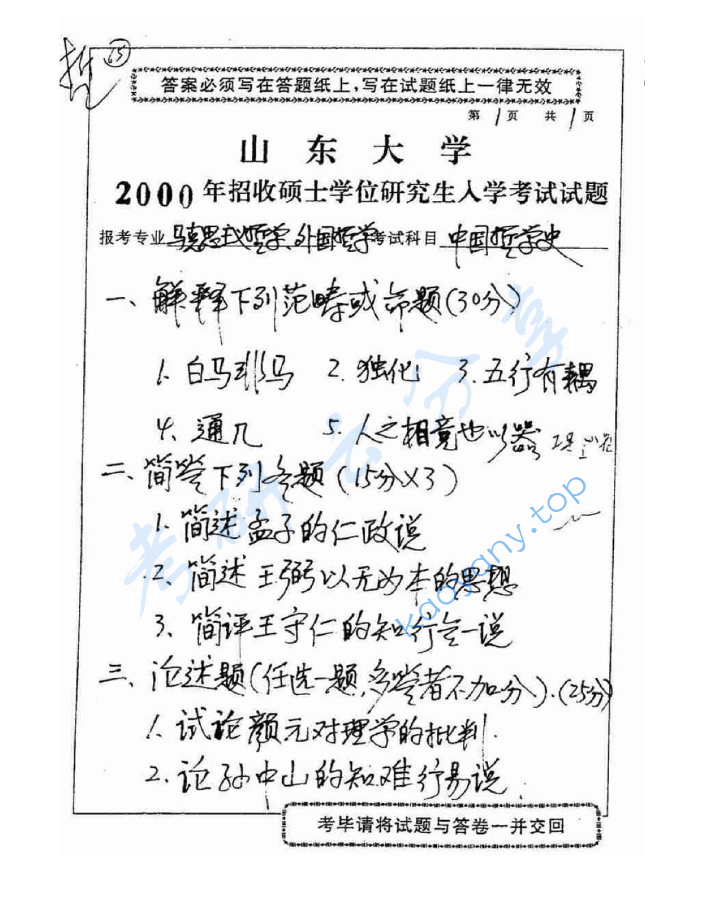 哲 65
答案必须写在答题纸上,写在试题纸上一律无效
第 1 页 共 1 页
山东大学
2000年招收硕士学位研究生入学考试试题
报考专业 马克思主义哲学、外国哲学 考试科目 中国哲学史
一、解释下列范畴或命题(30分)
1. 白马非马 2. 独化 3. 五行有耦
4. 通几 5. 人之相竞也以器
二、简答下列各题(15分×3)
1. 简述孟子的仁政说
2. 简述王弼以无为本的思想
3. 简评王守仁的知行合一说
三、论述题(任选一题,多答者不加分).(25分)
1. 试论颜元对理学的批判.
2. 论孙中山的知难行易说.
考毕请将试题与答卷一并交回
考研云分享
kaoyany.top